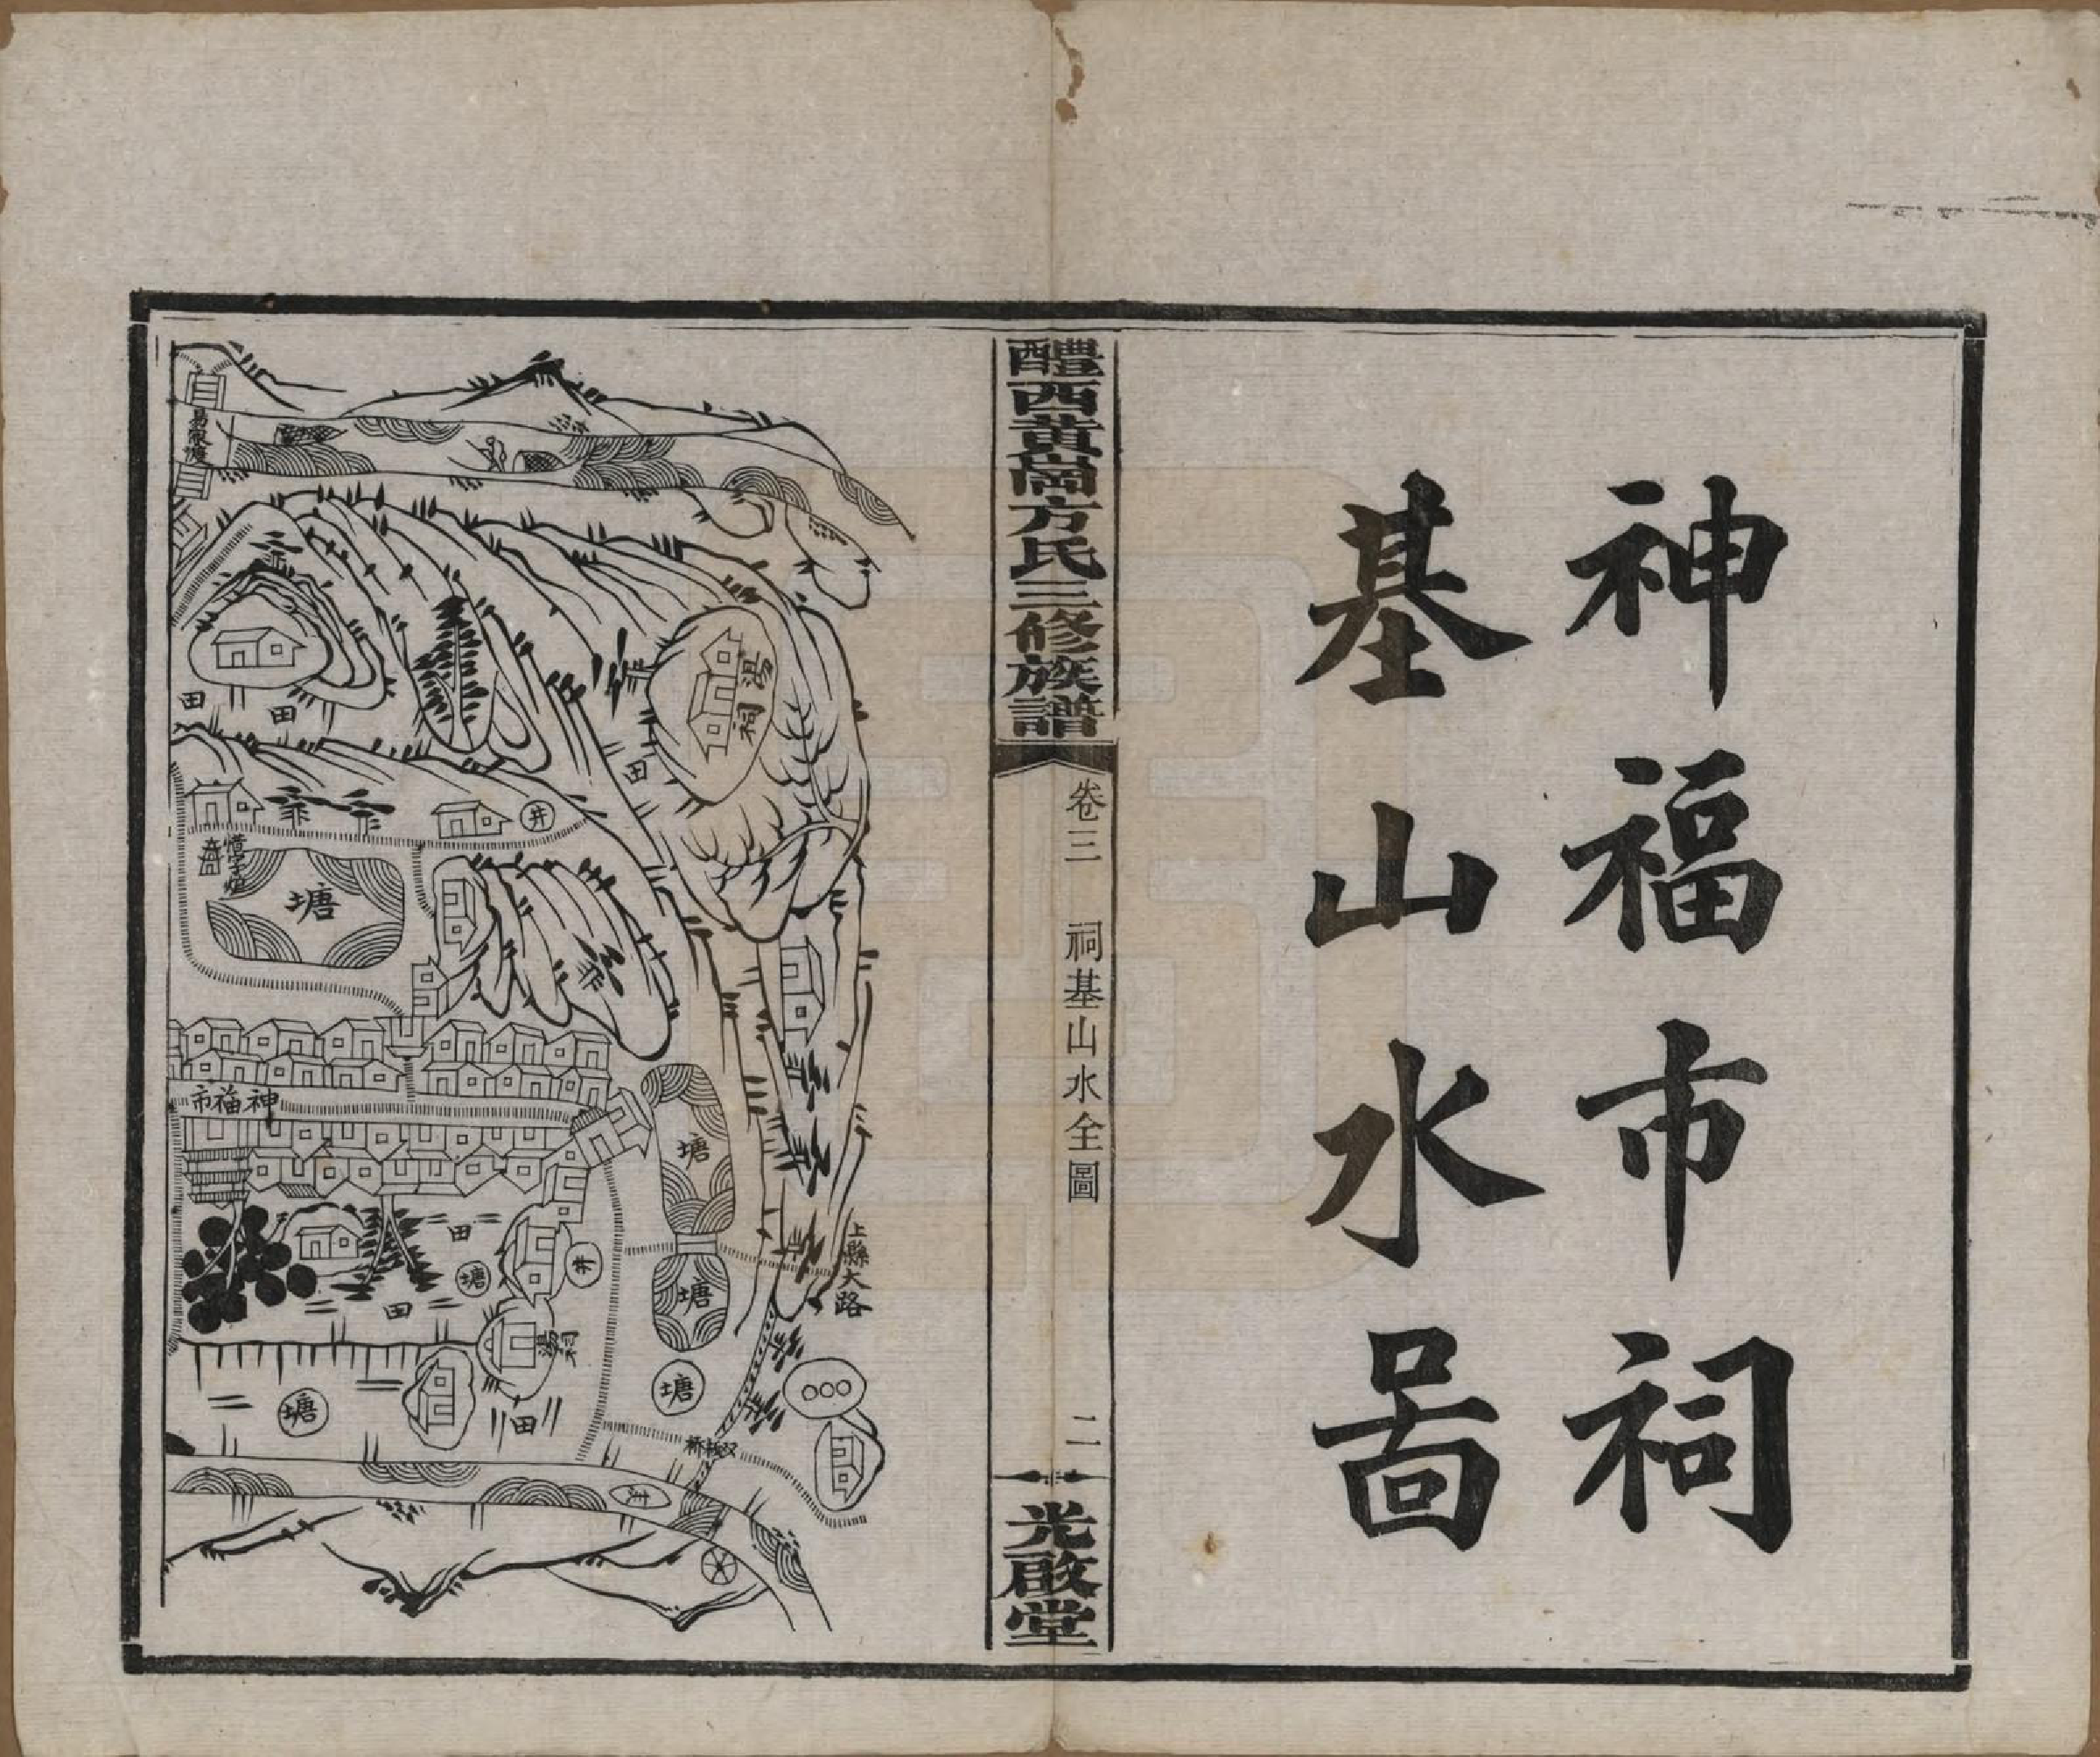 神福市祠
基山水啚
醴西黃崗方氏三修族譜
卷三
祠基山水全圖
二
光啟堂
上縣大路
湯祠
田
塘
塘
塘
双板橋
井
田
井
湯祠
田
塘
田
塘
田
神福市
塘
惜字爐
田
田
易家渡